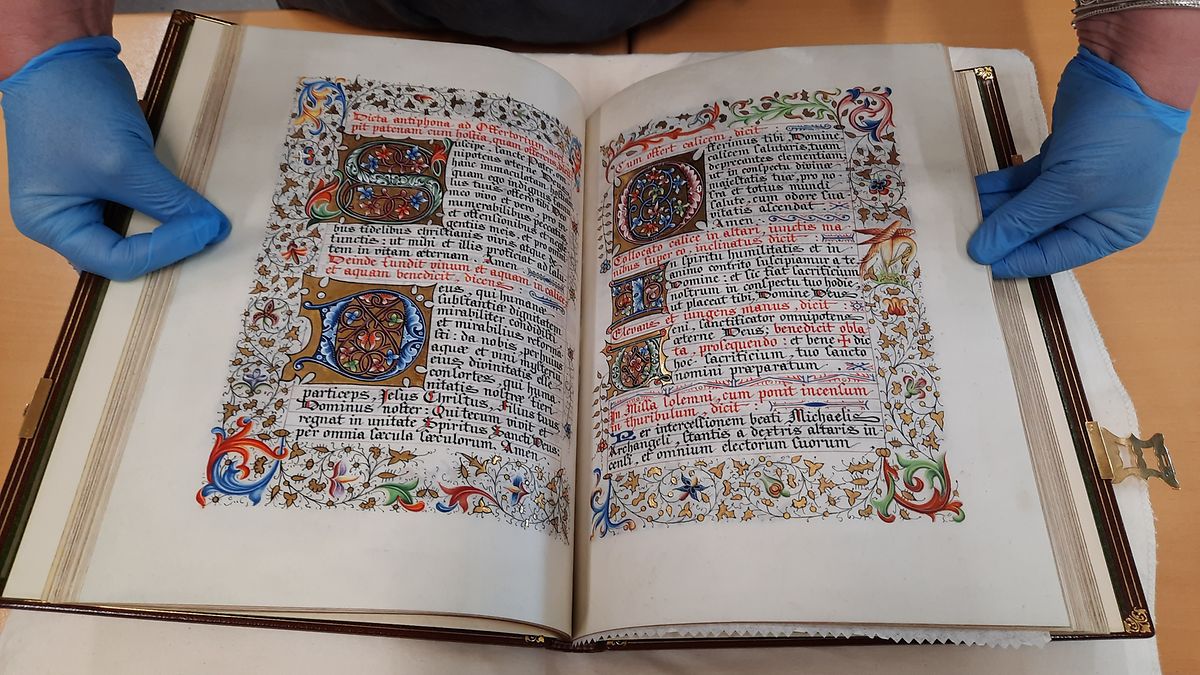 Dicta antiphona ad Offertorium, acci
pit patenam cum hostia, quam offerens
Suscipe, sancte Pater
nipotens æterne Deus
hanc immaculatam hostiam
quam ego indignus famu
lus tuus offero tibi, Deo
meo vivo et vero, pro in
numerabilibus peccatis
et offensionibus, et negli
gentiis meis, et pro
bus fidelibus christianis vivis
functis: ut mihi et illis proficiat ad salu
tem in vitam æternam. Amen
Deinde fundit vinum et aquam in calice
et aquam benedicit, dicens
Deus, qui humanæ
substantiæ dignitatem
mirabiliter condidisti
et mirabilius reforma
sti: da nobis, per hujus
aquæ et vini mysterium
ejus divinitatis esse
consortes, qui huma
nitatis nostræ fieri
particeps, Jesus Christus, Filius tuus
Dominus noster: Qui tecum vivit et
regnat in unitate Spiritus Sancti Deus:
per omnia sæcula sæculorum. Amen
Cum offert calicem, dicit
Offerimus tibi, Domine
calicem salutaris, tuam
deprecantes clementiam
ut in conspectu divinæ
majestatis tuæ, pro no
stra et totius mundi
salute, cum odore sua
vitatis ascendat.
Amen
Collocato calice in altari, junctis ma
nibus super eo inclinatus dicit
In spiritu humilitatis, et in
animo contrito suscipiamur a te
Domine: et sic fiat sacrificium
nostrum in conspectu tuo hodie
ut placeat tibi, Domine Deus
Elevans et jungens manus, dicit
Veni, sanctificator omnipotens
æterne Deus; benedicit obla
ta, prosequendo: et bene ✠ dic
hoc sacrificium, tuo sancto
nomini præparatum
In Missa solemni, cum ponit incensum
in thuribulum, dicit
Per intercessionem beati Michaelis
Archangeli, stantis a dextris altaris in
censi, et omnium electorum suorum